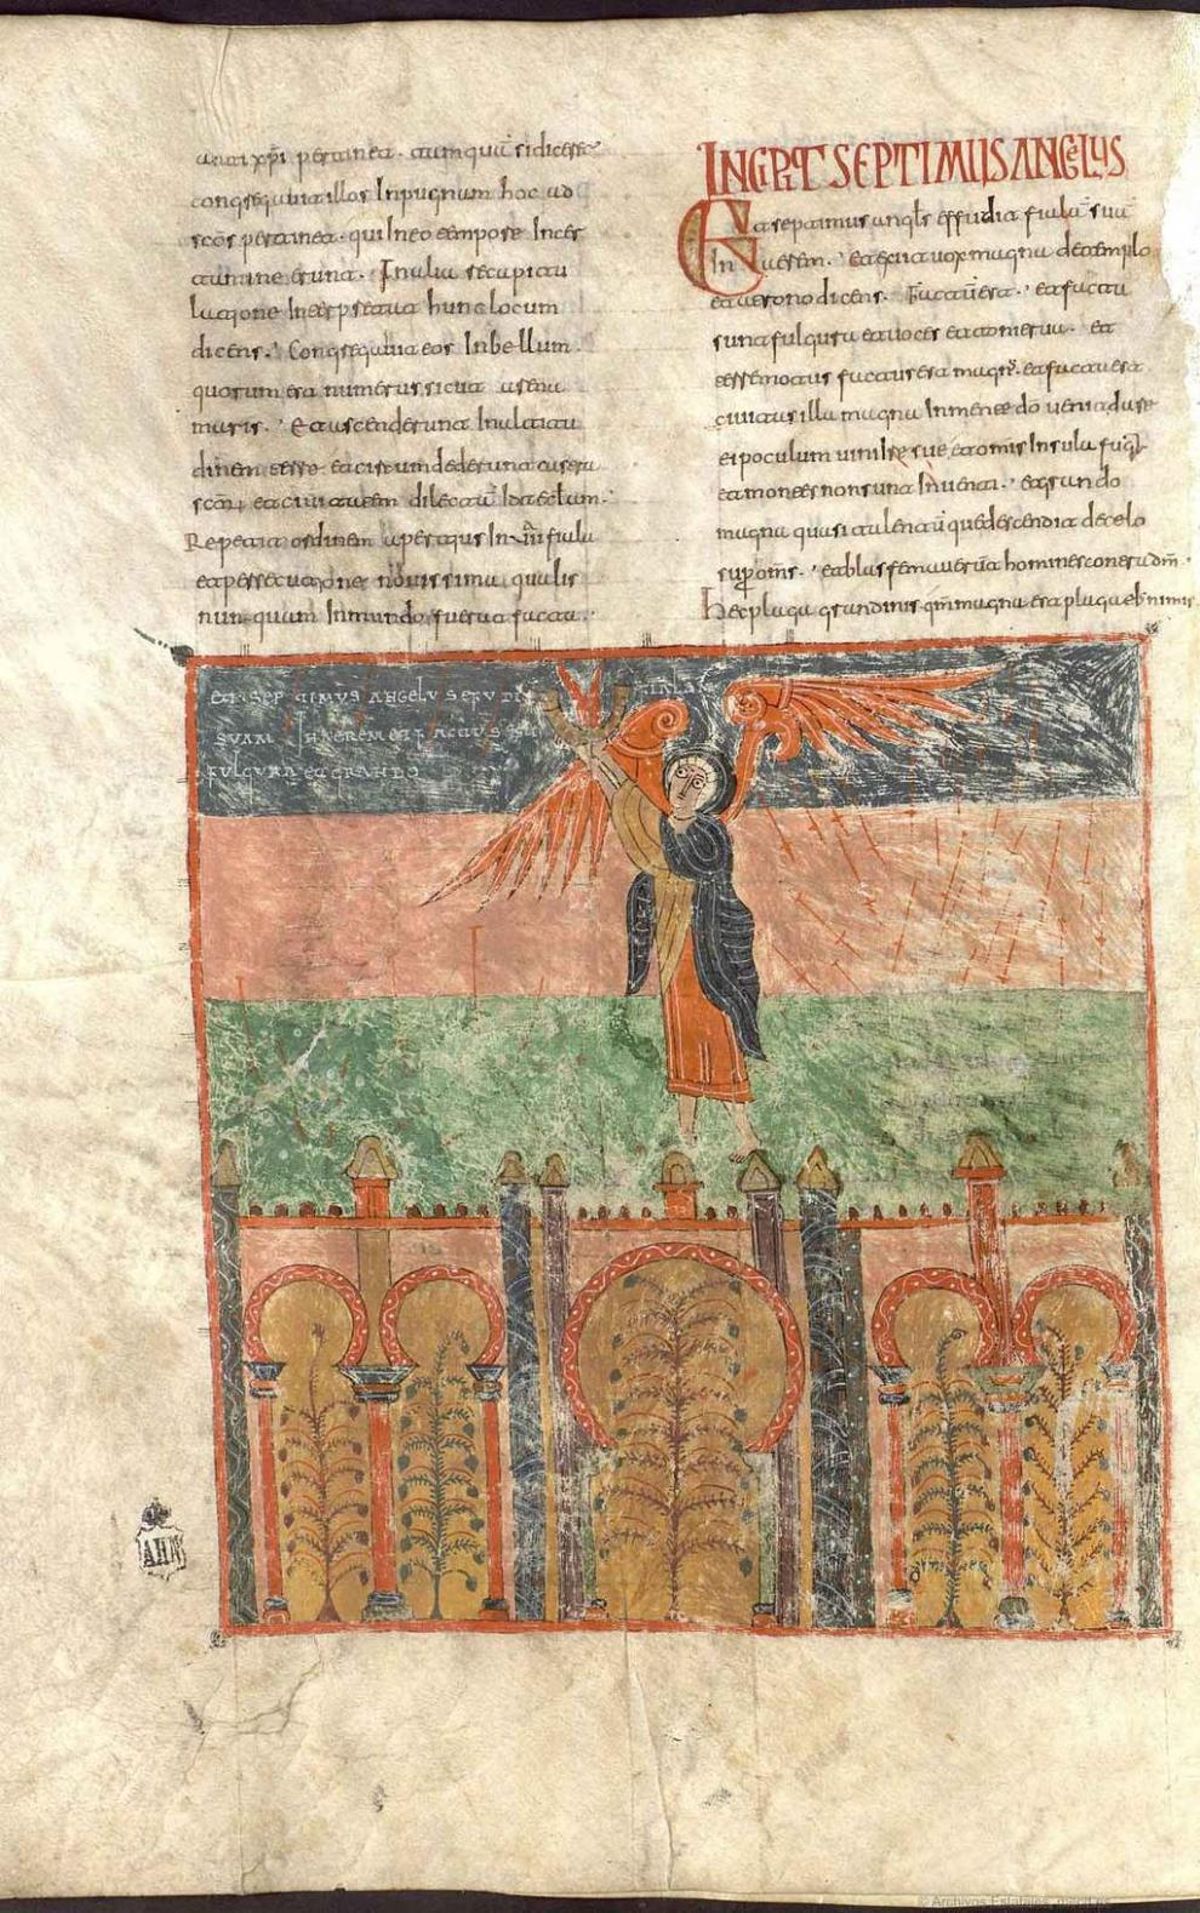 pertinet. cumqui ̄si dicesse
congregabit illos In pugnam hoc ad
scōs pertinet. qui In eo tempore In cer
tamine erunt. In alia recapitu
latione Interpretatur hunc locum
dicens. Congregabit eos In bellum.
quorum est numerus sicut arena
maris. Et ascenderunt In altitu
dinem terre et circumdederunt castra
scōr et civitatem dilectam
Repetit ordinem
et persecutione novissima qualis
nunquam In mundo fuerat facta.
INCIPIT SEPTIMUS ANGELUS
Et septimus angls effudit fiala ̄ sua ̄
In aerem. et exivit vox magna de templo
et a trono dicens. et facta
sunt fulgura et voces et tonitrua. et
terremotus factus est magn. et facta est
civitas illa magna In mente dō venit dare
ei poculum vini Ire sue et omnis Insula fugit
et montes non sunt Inventi. et grando
magna quasi talentu ̄ que descendit de celo
super omns. et blasfemaverūt homines
Hec plaga grandinis qm magna est plaga
ET SEPTIMUS ANGELUS FUDIT FIALA
SUAM IN AEREM ET FACTUS EST
FULGURA ET GRANDO
AHN
© Archivos Estatales, mecd.es